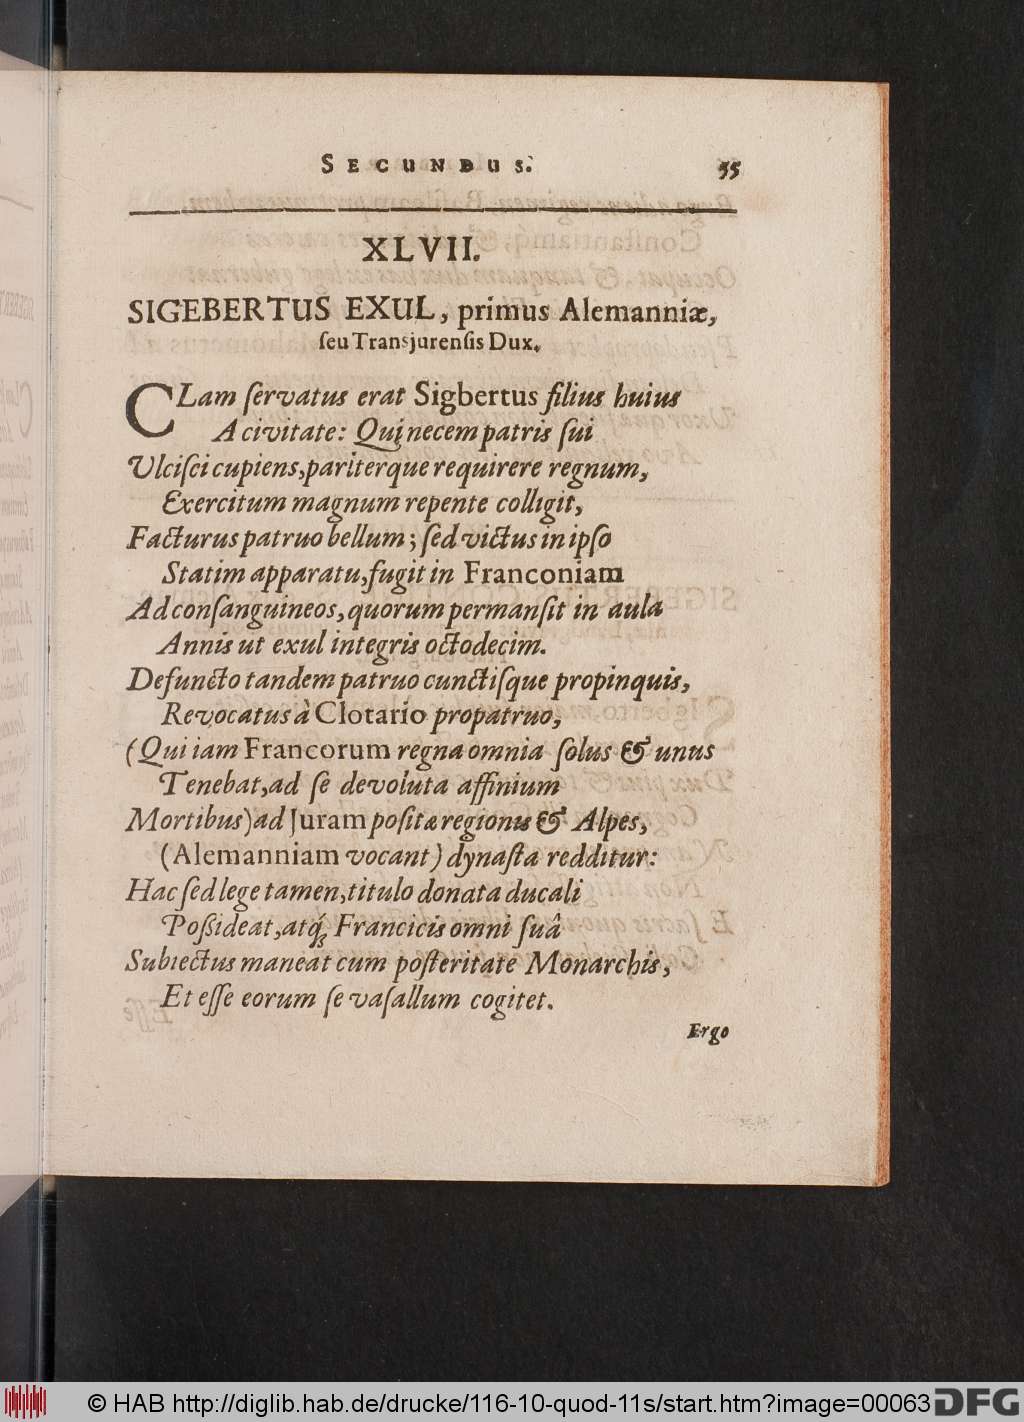 SECUNDUS. 55
XLVII.
SIGEBERTUS EXUL, primus Alemanniæ,
ſeu Transjurenſis Dux.
CLam ſervatus erat Sigbertus filius huius
A civitate: Qui necem patris ſui
Vlciſci cupiens, pariterque requirere regnum,
Exercitum magnum repente colligit,
Facturus patruo bellum; ſed victus in ipſo
Statim apparatu, fugit in Franconiam
Ad conſanguineos, quorum permanſit in aula
Annis ut exul integris octodecim.
Defuncto tandem patruo cunctiſque propinquis,
Revocatus à Clotario propatruo,
(Qui iam Francorum regna omnia ſolus & unus
Tenebat, ad ſe devoluta affinium
Mortibus) ad Juram poſitæ regionis & Alpes,
(Alemanniam vocant) dynaſta redditur:
Hac ſed lege tamen, titulo donata ducali
Poßideat, atq́; Francicis omni ſuâ
Subiectus maneat cum poſteritate Monarchis,
Et eſſe eorum ſe vaſallum cogitet.
Ergo
© HAB http://diglib.hab.de/drucke/116-10-quod-11s/start.htm?image=00063
DFG